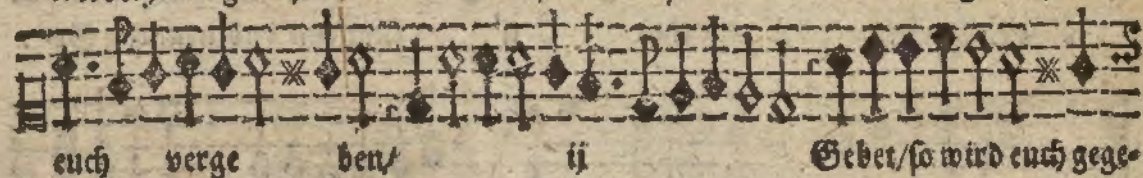 euch verge ben/ ij Gebet/so wird euch gege⸗